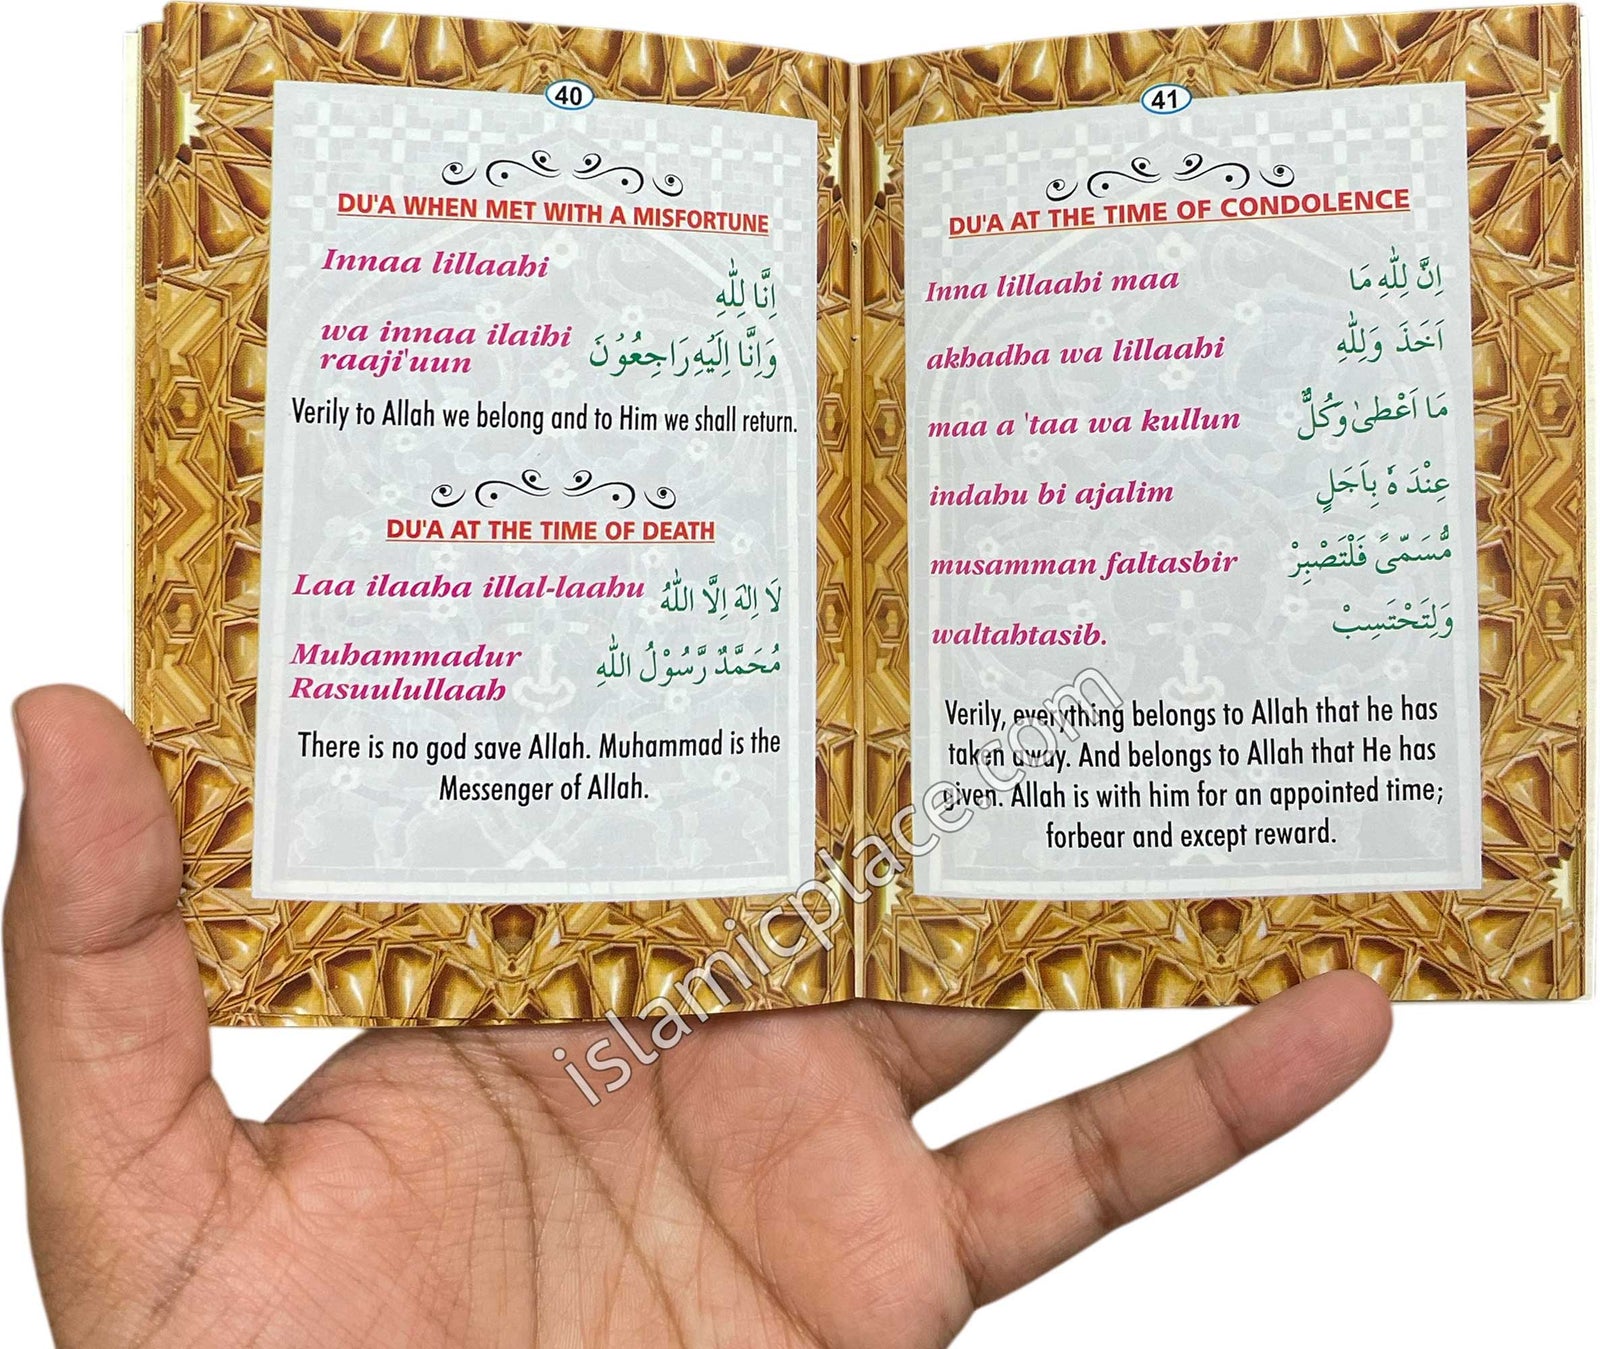 40
DU'A WHEN MET WITH A MISFORTUNE
Innaa lillaahi
اِنَّا لِلّٰهِ
wa innaa ilaihi
raaji'uun
وَاِنَّا اِلَيْهِ رَاجِعُوْنَ
Verily to Allah we belong and to Him we shall return.
DU'A AT THE TIME OF DEATH
Laa ilaaha illal-laahu
لَا اِلٰهَ اِلَّا اللّٰهُ
Muhammadur
Rasuulullaah
مُحَمَّدٌ رَّسُوْلُ اللّٰهِ
There is no god save Allah. Muhammad is the
Messenger of Allah.
41
DU'A AT THE TIME OF CONDOLENCE
Inna lillaahi maa
اِنَّ لِلّٰهِ مَا
akhadha wa lillaahi
اَخَذَ وَلِلّٰهِ
maa a 'taa wa kullun
مَا اَعْطٰى وَكُلٌّ
indahu bi ajalim
عِنْدَ هٗ بِاَجَلٍ
musamman faltasbir
مُّسَمًّى فَلْتَصْبِرْ
waltahtasib.
وَلِتَحْتَسِبْ
Verily, everything belongs to Allah that he has
taken away. And belongs to Allah that He has
given. Allah is with him for an appointed time;
forbear and except reward.
islamicplace.com